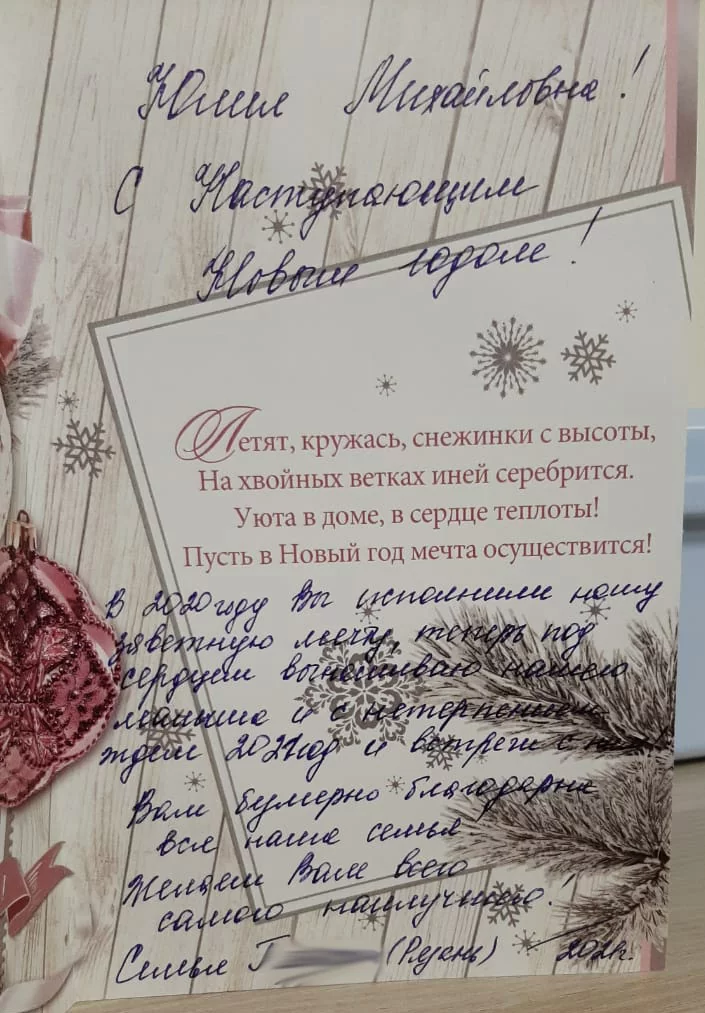 Юлия Михайловна!
С Наступающим
Новым годом!
Летят, кружась, снежинки с высоты,
На хвойных ветках иней серебрится.
Уюта в доме, в сердце теплоты!
Пусть в Новый год мечта осуществится!
В 2020 году Вы исполнили нашу
заветную мечту, теперь под
сердцем вынашиваю нашего
малыша и с нетерпением
ждем 2021 год и встречи с
Вам безмерно благодарна
вся наша семья.
Желаем Вам всего
самого наилучшего!
Семья Г (Рязань) 2021г.